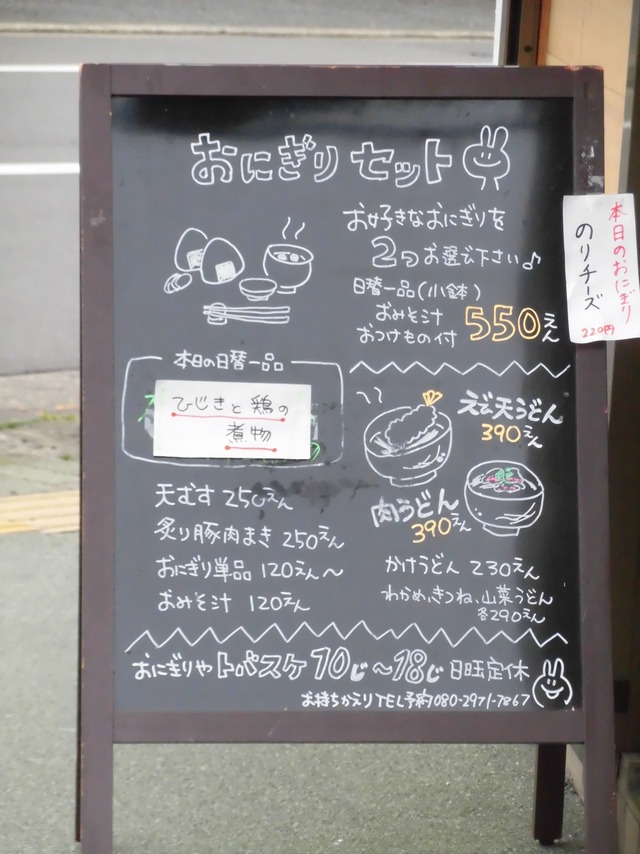 おにぎり セット
お好きなおにぎりを
2つお選び下さい♪
日替一品(小鉢)
おみそ汁
おつけもの付
550えん
本日のおにぎり
のりチーズ
220円
本日の日替一品
ひじきと鶏の
煮物
えび天うどん
390えん
肉うどん
390えん
天むす 250えん
炙り豚肉まき 250えん
おにぎり単品 120えん〜
おみそ汁 120えん
かけうどん 230えん
わかめ、きつね、山菜うどん
各290えん
おにぎりや トバスケ 10じ〜18じ 日曜定休
お持ちかえりTEL予約 080-2971-7867